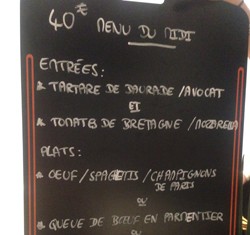 40€ MENU DU MIDI
ENTRÉES:
TARTARE DE DAURADE /AVOCAT
ET
TOMATES DE BRETAGNE / MOZARELLA
PLATS:
OEUF/SPAGETTIS/CHAMPIGNONS
DE PARIS
OU
QUEUE DE BŒUF EN PARMENTIER
OU